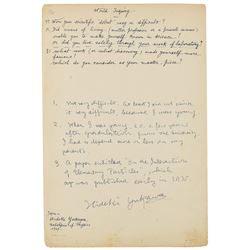 1. Were your scientific "debut" very a difficult?
2. Did means of living (neither professor in a private man)
enable you to make yourself known as
or did you live solely through your work of laboratory?
3. What work (or what discovery) made yourselves more
famous?
which do you consider as your master piece?
1. Not very difficult. (At least I did not think
it very difficult, because I was young.
2. When I was young, i.e. a few years
after graduation from the university
I had to depend more or less on my
parents.
3. A paper entitled "On the Interaction
of Elementary Particles", which
was published early in 1935.
Hideki Yukawa
Japan
Hideki Yukawa
of Physics